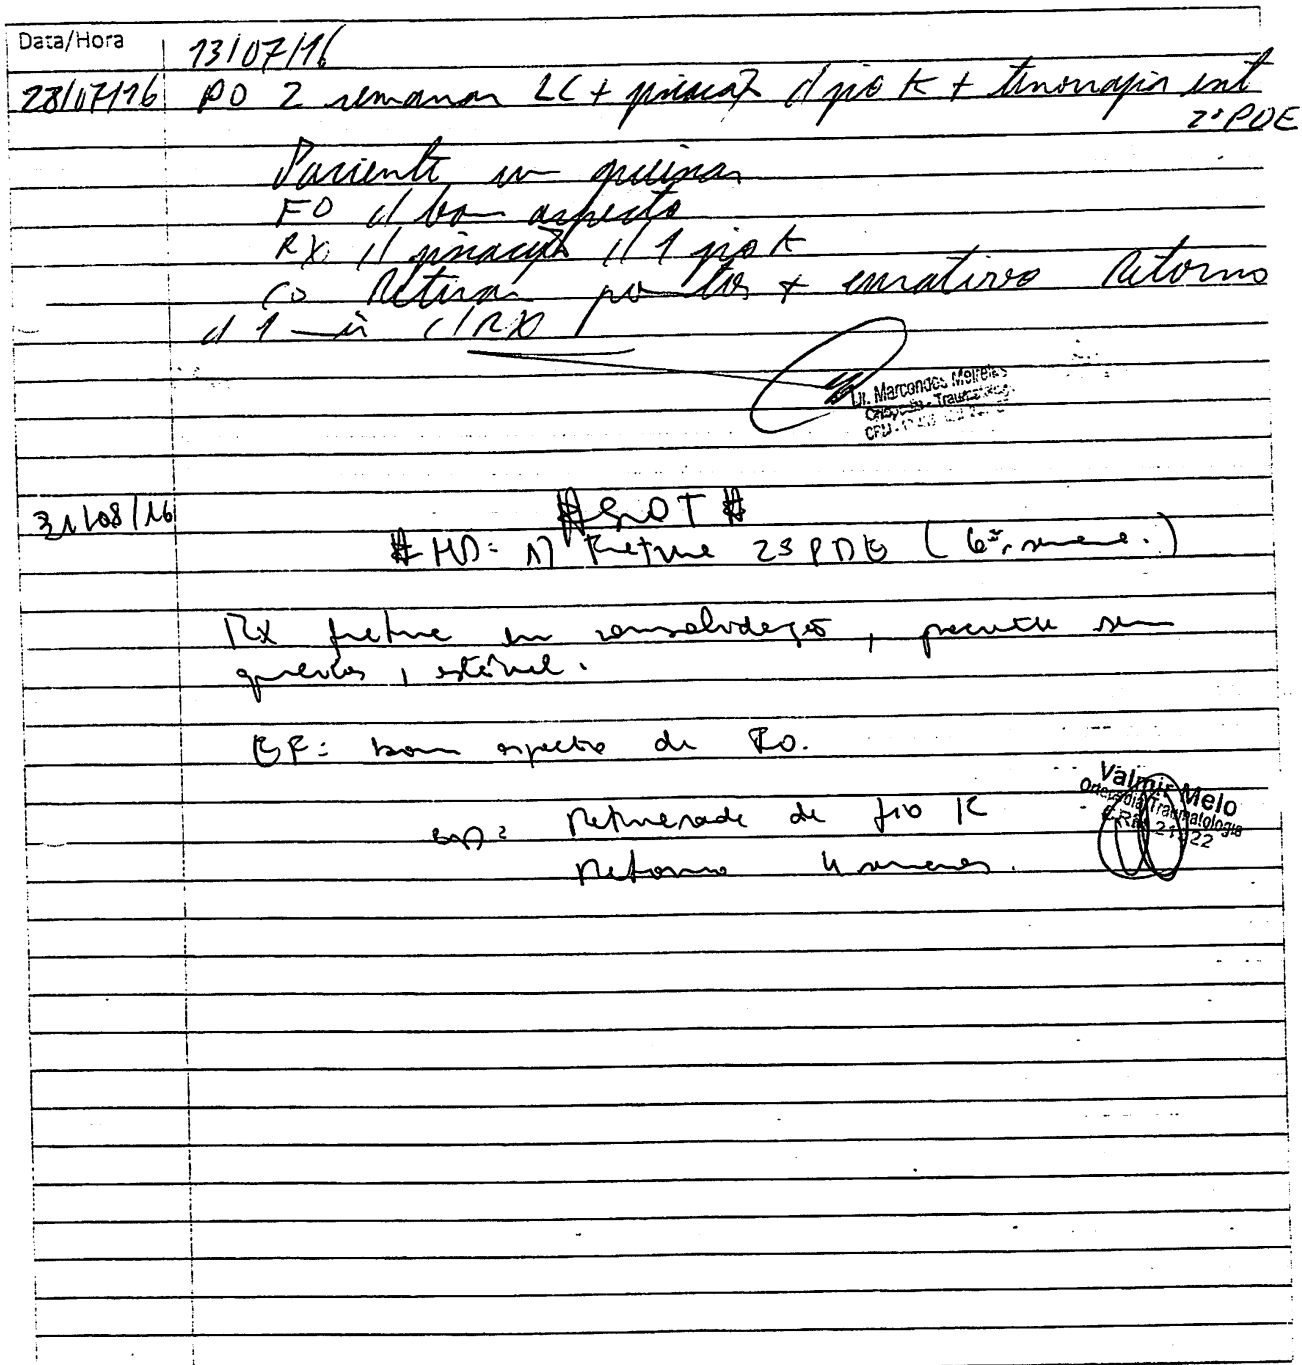 Data/Hora
13/07/16
28/07/16 PO 2 semanas LC + fixação c/ fio K + tenorrafia ext
2º PDE
Paciente sem queixas
FO c/ bom aspecto
RX c/ fixação c/ 1 fio K
CD Retirar pontos + curativos Retorno
c/ 1 mês c/ RX
Dr. Marcondes Meireles
Ortopedia - Traumatologia
31/08/16 # SOT #
# HD: 1) Fratura 2º PDE (6ª semana.)
Rx fratura em consolidação, paciente sem
queixas, estável.
EF: bom aspecto da FO.
CD: Retirada de fio K
Retorno 4 semanas.
Valmir Melo
Ortopedia/Traumatologia
CRM